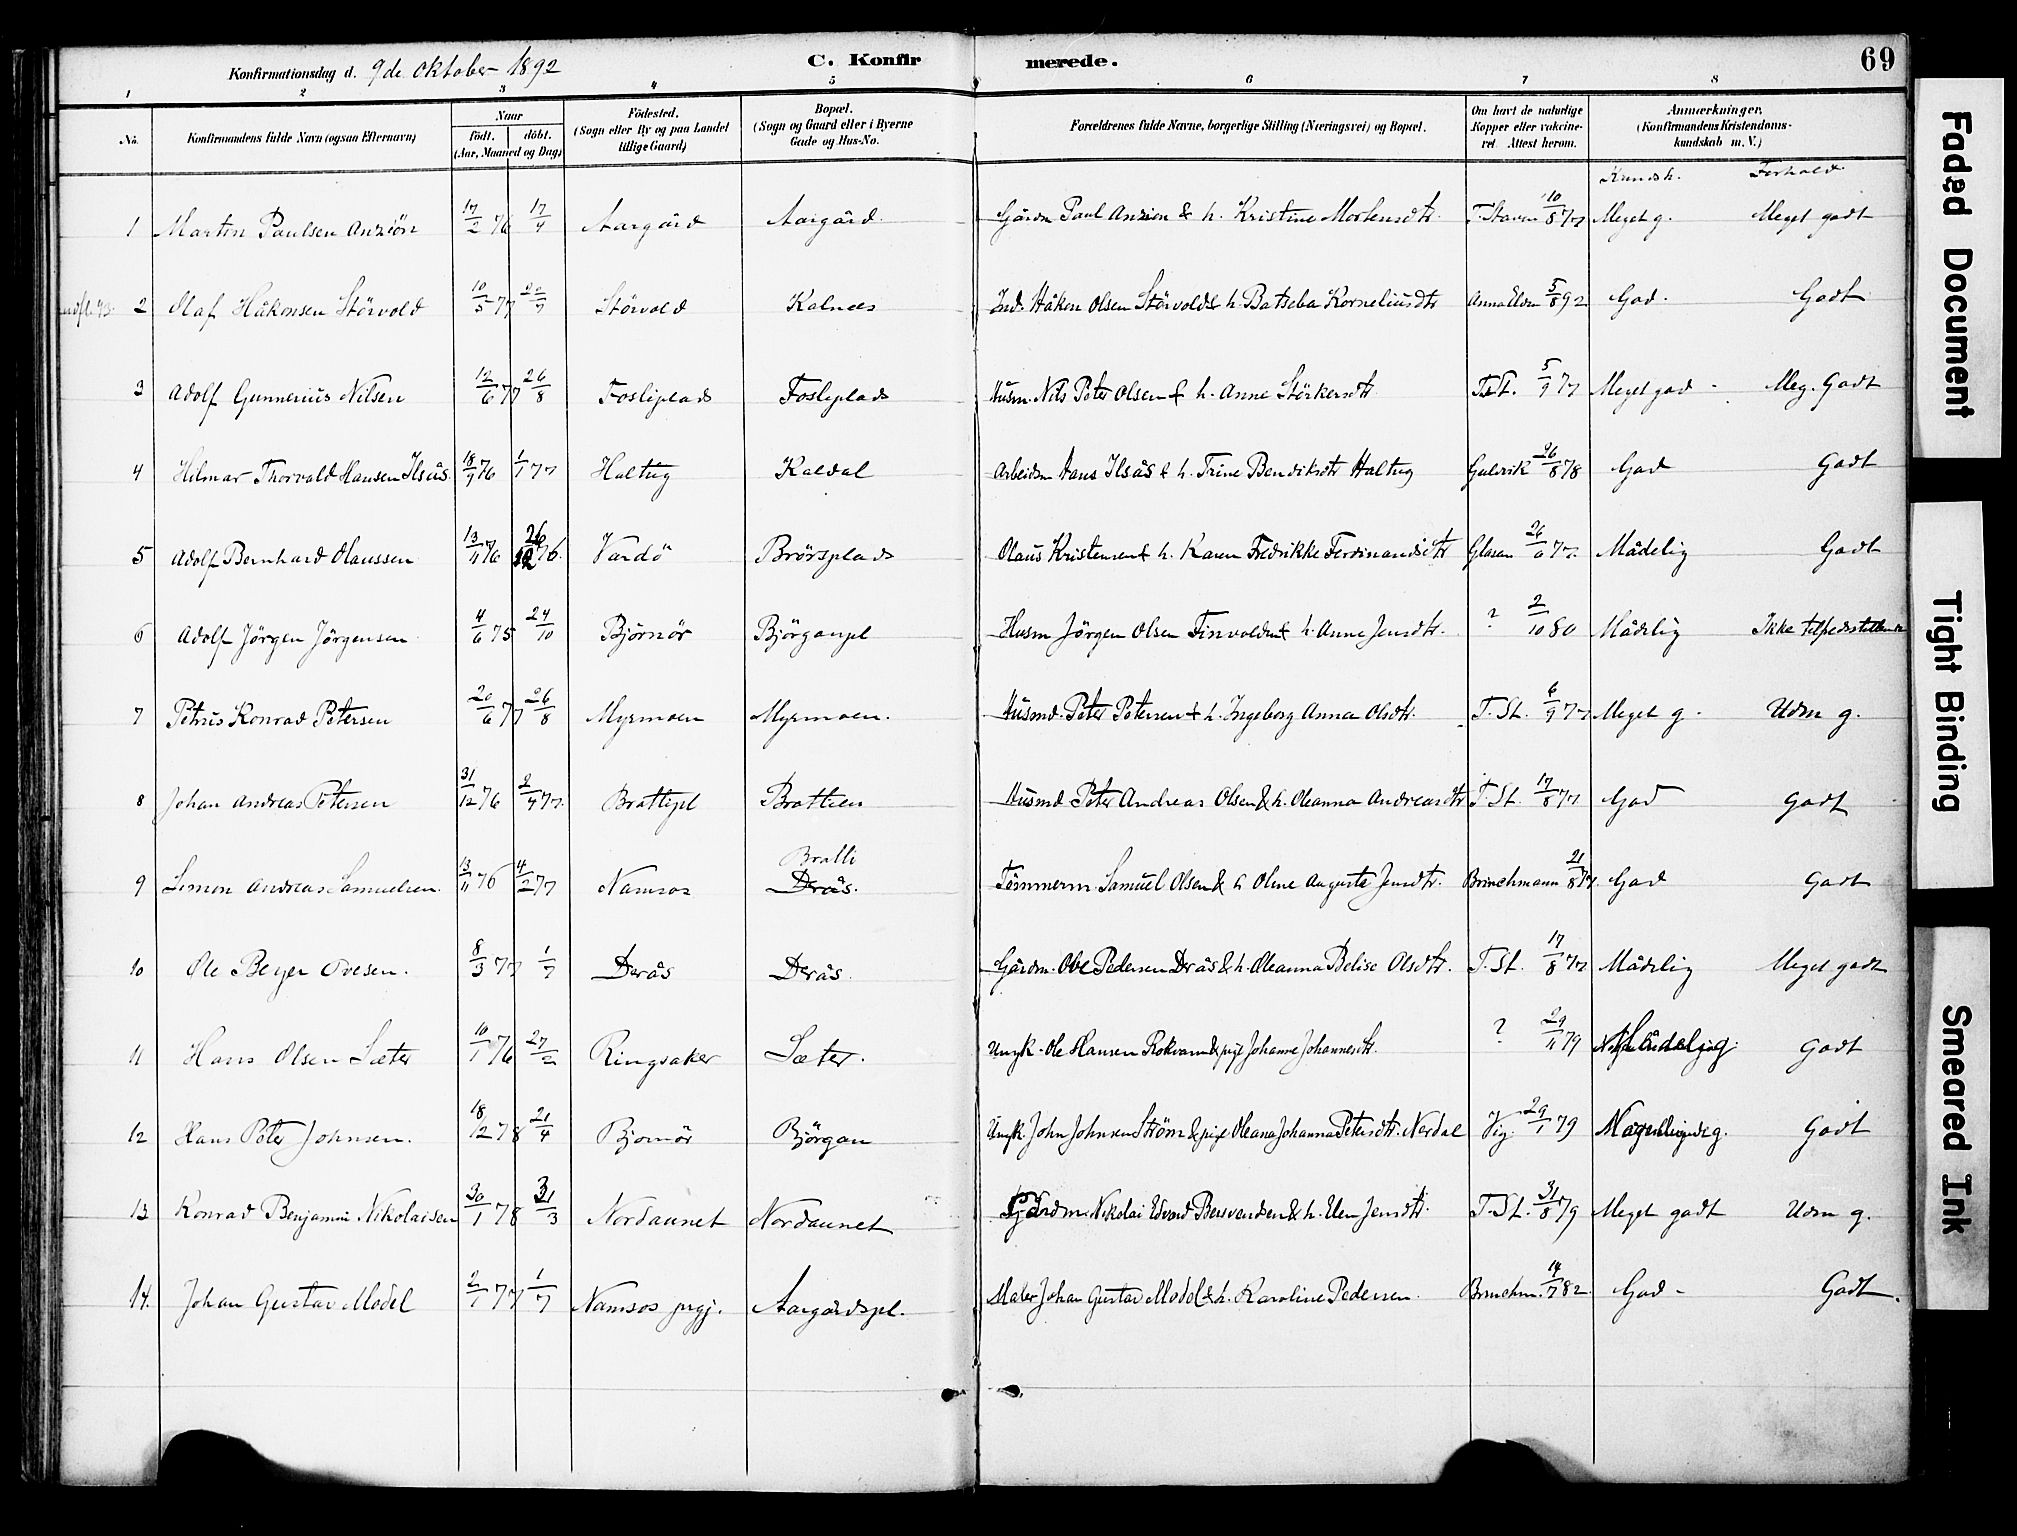 Konfirmationsdag d. 9de Oktober 1892 C. Konfirmerede. 69
1 2 3 4 5 6 7 8
No. Konfirmandens fulde Navn (ogsaa Efternavn) Naar født. døbt. (Aar, Maaned og Dag) Fødested. (Sogn eller By og paa Landet tillige Gaard) Bopæl. (Sogn og Gaard eller i Byerne Gade og Hus-No. Forældrenes fulde Navne, borgerlige Stilling (Næringsvei) og Bopæl. Om havt de naturlige Kopper eller vakcineret. Attest herom. Anmærkninger, (Konfirmandens Kristendomskundskab m. V.)
Kundsk. Forhold
1 Martin Paulsen Anziön 17/2 76 17/4 Aargård Aargård Gårdm Paul Anzion & h. Kristine Mortensdtr. T. Staven 10/8 77 Meget g. Meget godt
2 Olaf Håkonsen Störvold 10/5 77 20/9 Störvold Kalnes Ind. Håkon Olsen Störvold & h. Batseba Korneliusdtr Anna Elden 5/8 92 God. Godt
3 Adolf Gunnerius Nilsen 12/6 77 26/8 Fosliplads Fosliplads Husm. Nils Peter Olsen & h. Anne Störkersdtr T. St. 5/9 77 Meget god Meg. Godt
4 Hilmar Thorvald Hansen Ilsås 18/9 76 1/1 77 Haltug Kaldal Arbeidsm Hans Ilsås & h. Trine Bendiksdtr Haltug Gulvik 26/8 78 God Godt
5 Adolf Bernhard Olaussen 13/11 76 26/12 76. Vardö Brörsplads Olaus Kristensen & h. Karen Fredrikke Ferdinandsdtr Glasen 26/6 77. Mådelig Godt
6 Adolf Jörgen Jörgensen 4/6 75 24/10 Björnör Björganpl Husm Jörgen Olsen Finvolden & h. Anne Jensdtr. ? 2/10 80 Mådelig Ikke tilfredsstillende
7 Petrus Konrad Petersen 20/6 77 26/8 Myrmoen Myrmoen. Husmd. Peter Petersen & h. Ingeborg Anna Olsdtr. T. St. 6/9 77 Meget g. Udm g.
8 Johan Andreas Petersen 31/12 76 2/4 77. Brattepl Bratten Husmd Peter Andreas Olsen & h. Oleanna Andreasdtr T. St. 17/8 77 God Godt
Bratli
9 Simon Andreas Samuelsen. 13/11 76 4/2 77 Namsos Derås. Tömmerm Samuel Olsen & h Oline Auguste Jensdtr. Brinchmann 21/8 77. God Godt
10 Ole Beyer Ovesen. 8/3 77 1/7 Derås Derås. Gårdm. Ove Pedersen Derås & h. Oleanna Belise Olsdtr. T. St. 17/8 77 Mådelig Meget godt
11 Hans Olsen Sæter 10/1 76 27/2 Ringsaker Sæter. Ungk. Ole Hansen Rokvam & pige Johanne Johannesdtr. ? 29/11 79 Mådelig Godt
12 Hans Peter Johnsen. 18/12 78 21/4 Björnör Björgan Ungk. John Johnsen Ström & pige Oleana Johanna Petersdtr. Nerdal Vig. 29/1 79 Godt
13 Konrad Benjamin Nikolaisen 30/1 78 31/3 Nordaunet Nordaunet Gårdm. Nikolai Edvard Bersvendsen & h. Elen Jensdtr. T. St. 31/8 79 Meget godt Udm g.
14. Johan Gustav Model 2/1 77 1/7 Namsos prgj. Aargårdspl. Maler Johan Gustav Model & h. Karoline Pedersen. Brinchm. 14/7 82 God - Godt.
Faded Document
Tight Binding
Smeared Ink